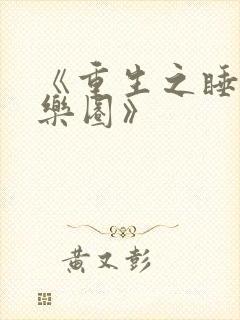 《重生之睡
樂園》
黃又彭